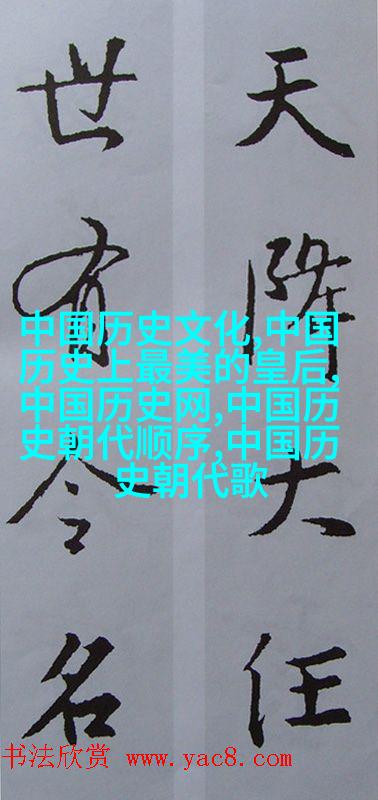 天降大任
世有令名
中国历史文化,中国
历史上最美的皇后,
中国历史网,中国历
史朝代顺序,中国历
史朝代歌
书法欣赏 www.yac8.com